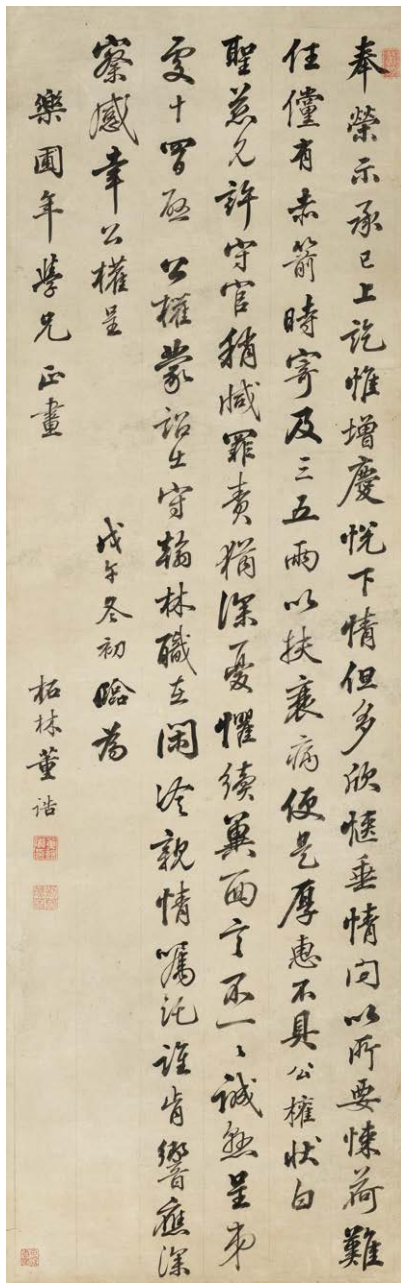 奉榮示承已上訖惟增慶悅下情但多欣愜垂情問以所要悚荷難
任儻有赤箭時寄及三五兩以扶衰病便是厚惠不具公權狀白
聖慈允許守官稍減罪責猶深憂懼續冀面言不一〻誠懸呈弟
十四日 公權蒙詔出守翰林職在閑冷親情囑託誰肯響應深
察感幸公權呈 戊午冬初臨為
樂圃年學兄正畫 柘林董誥